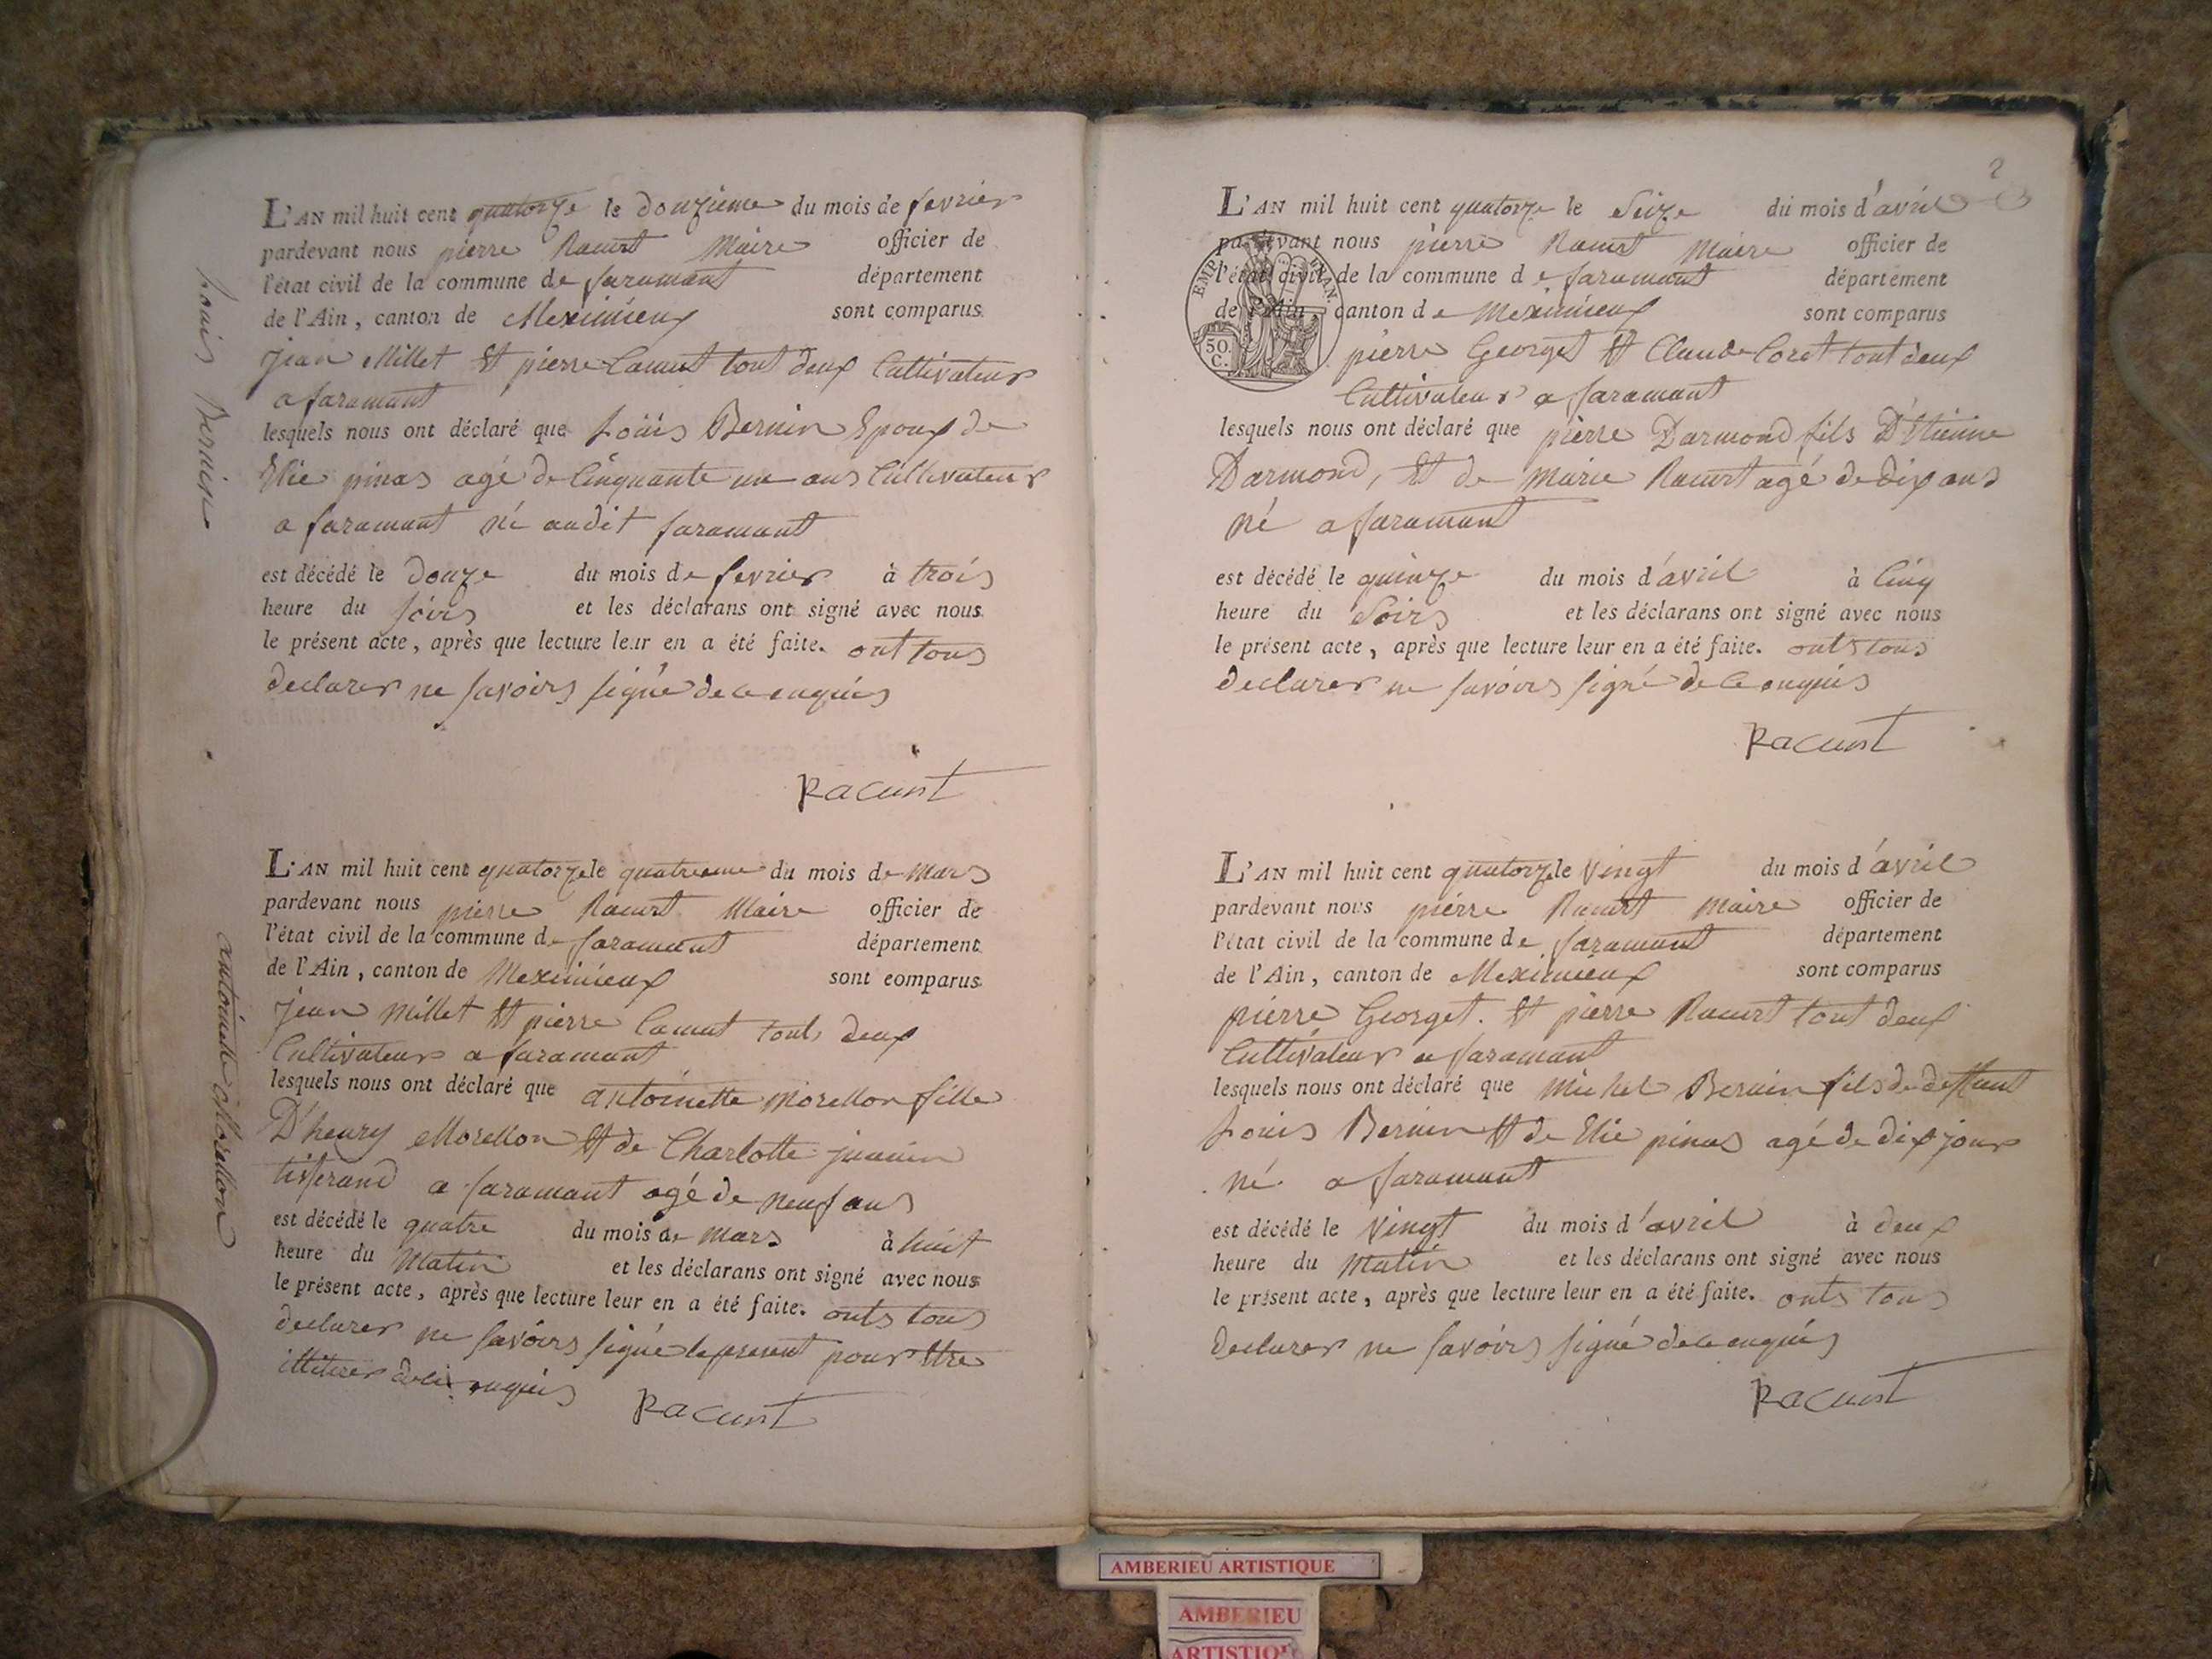 L'AN mil huit cent quatorze le douzieme du mois de fevrier
pardevant nous pierre Racurt Maire officier de
l'état civil de la commune de faramant département
de l'Ain, canton de Meximieux sont comparus
jean Millet Et pierre Camut tout deux Cultivateur
a faramant
lesquels nous ont déclaré que Loüis Bernin Epoux de
Elie pinas agé de Cinquante un ans Cultivateur
a faramant né audit faramant
est décédé le douze du mois de fevrier à trois
heure du soirs et les déclarans ont signé avec nous
le présent acte, après que lecture leur en a été faite. ont tous
declarer ne savoirs signé de ce enquis
Racurt
Louis Bernin
L'AN mil huit cent quatorze le quatrieme du mois de mars
pardevant nous pierre Racurt Maire officier de
l'état civil de la commune de faramant département
de l'Ain, canton de Meximieux sont comparus
jean Millet Et pierre Camut tout deux
Cultivateur a faramant
lesquels nous ont déclaré que antoinette morellon fille
D'henry Morellon Et de Charlotte juanin
tisserand a faramant agé de neuf ans
est décédé le quatre du mois de mars à huit
heure du Matin et les déclarans ont signé avec nous
le présent acte, après que lecture leur en a été faite. onts tous
declarer ne savoirs signé le present pour Etre
illiturer de ce enquis
Racurt
antoinette Morellon
2
L'AN mil huit cent quatorze le Seize du mois d'avril
pardevant nous pierre Racurt Maire officier de
l'état civil de la commune de faramant département
de l'Ain, canton de Meximieux sont comparus
EMP. FRAN.
50 C.
pierre Georget Et Claude Coret tout deux
Cultivateur a faramant
lesquels nous ont déclaré que pierre Darmond fils D'Etienne
Darmond, Et de Marie Racurt agé de dix ans
né a faramant
est décédé le quinze du mois d'avril à Cinq
heure du Soirs et les déclarans ont signé avec nous
le présent acte, après que lecture leur en a été faite. onts tous
declarer ne savoirs signé de ce enquis
Racurt
L'AN mil huit cent quatorze le Vingt du mois d'avril
pardevant nous pierre Racurt maire officier de
l'état civil de la commune de faramant département
de l'Ain, canton de Meximieux sont comparus
pierre Georget. Et pierre Racurt tout deux
Cultivateur a faramant
lesquels nous ont déclaré que Michel Bernin fils de deffunt
Louis Bernin Et de Elie pinas agé de dix jour
né a faramant
est décédé le Vingt du mois d'avril à deux
heure du Matin et les déclarans ont signé avec nous
le présent acte, après que lecture leur en a été faite. onts tous
declarer ne savoirs signé de ce enquis
Racurt
AMBERIEU ARTISTIQUE
AMBERIEU
ARTISTIQU